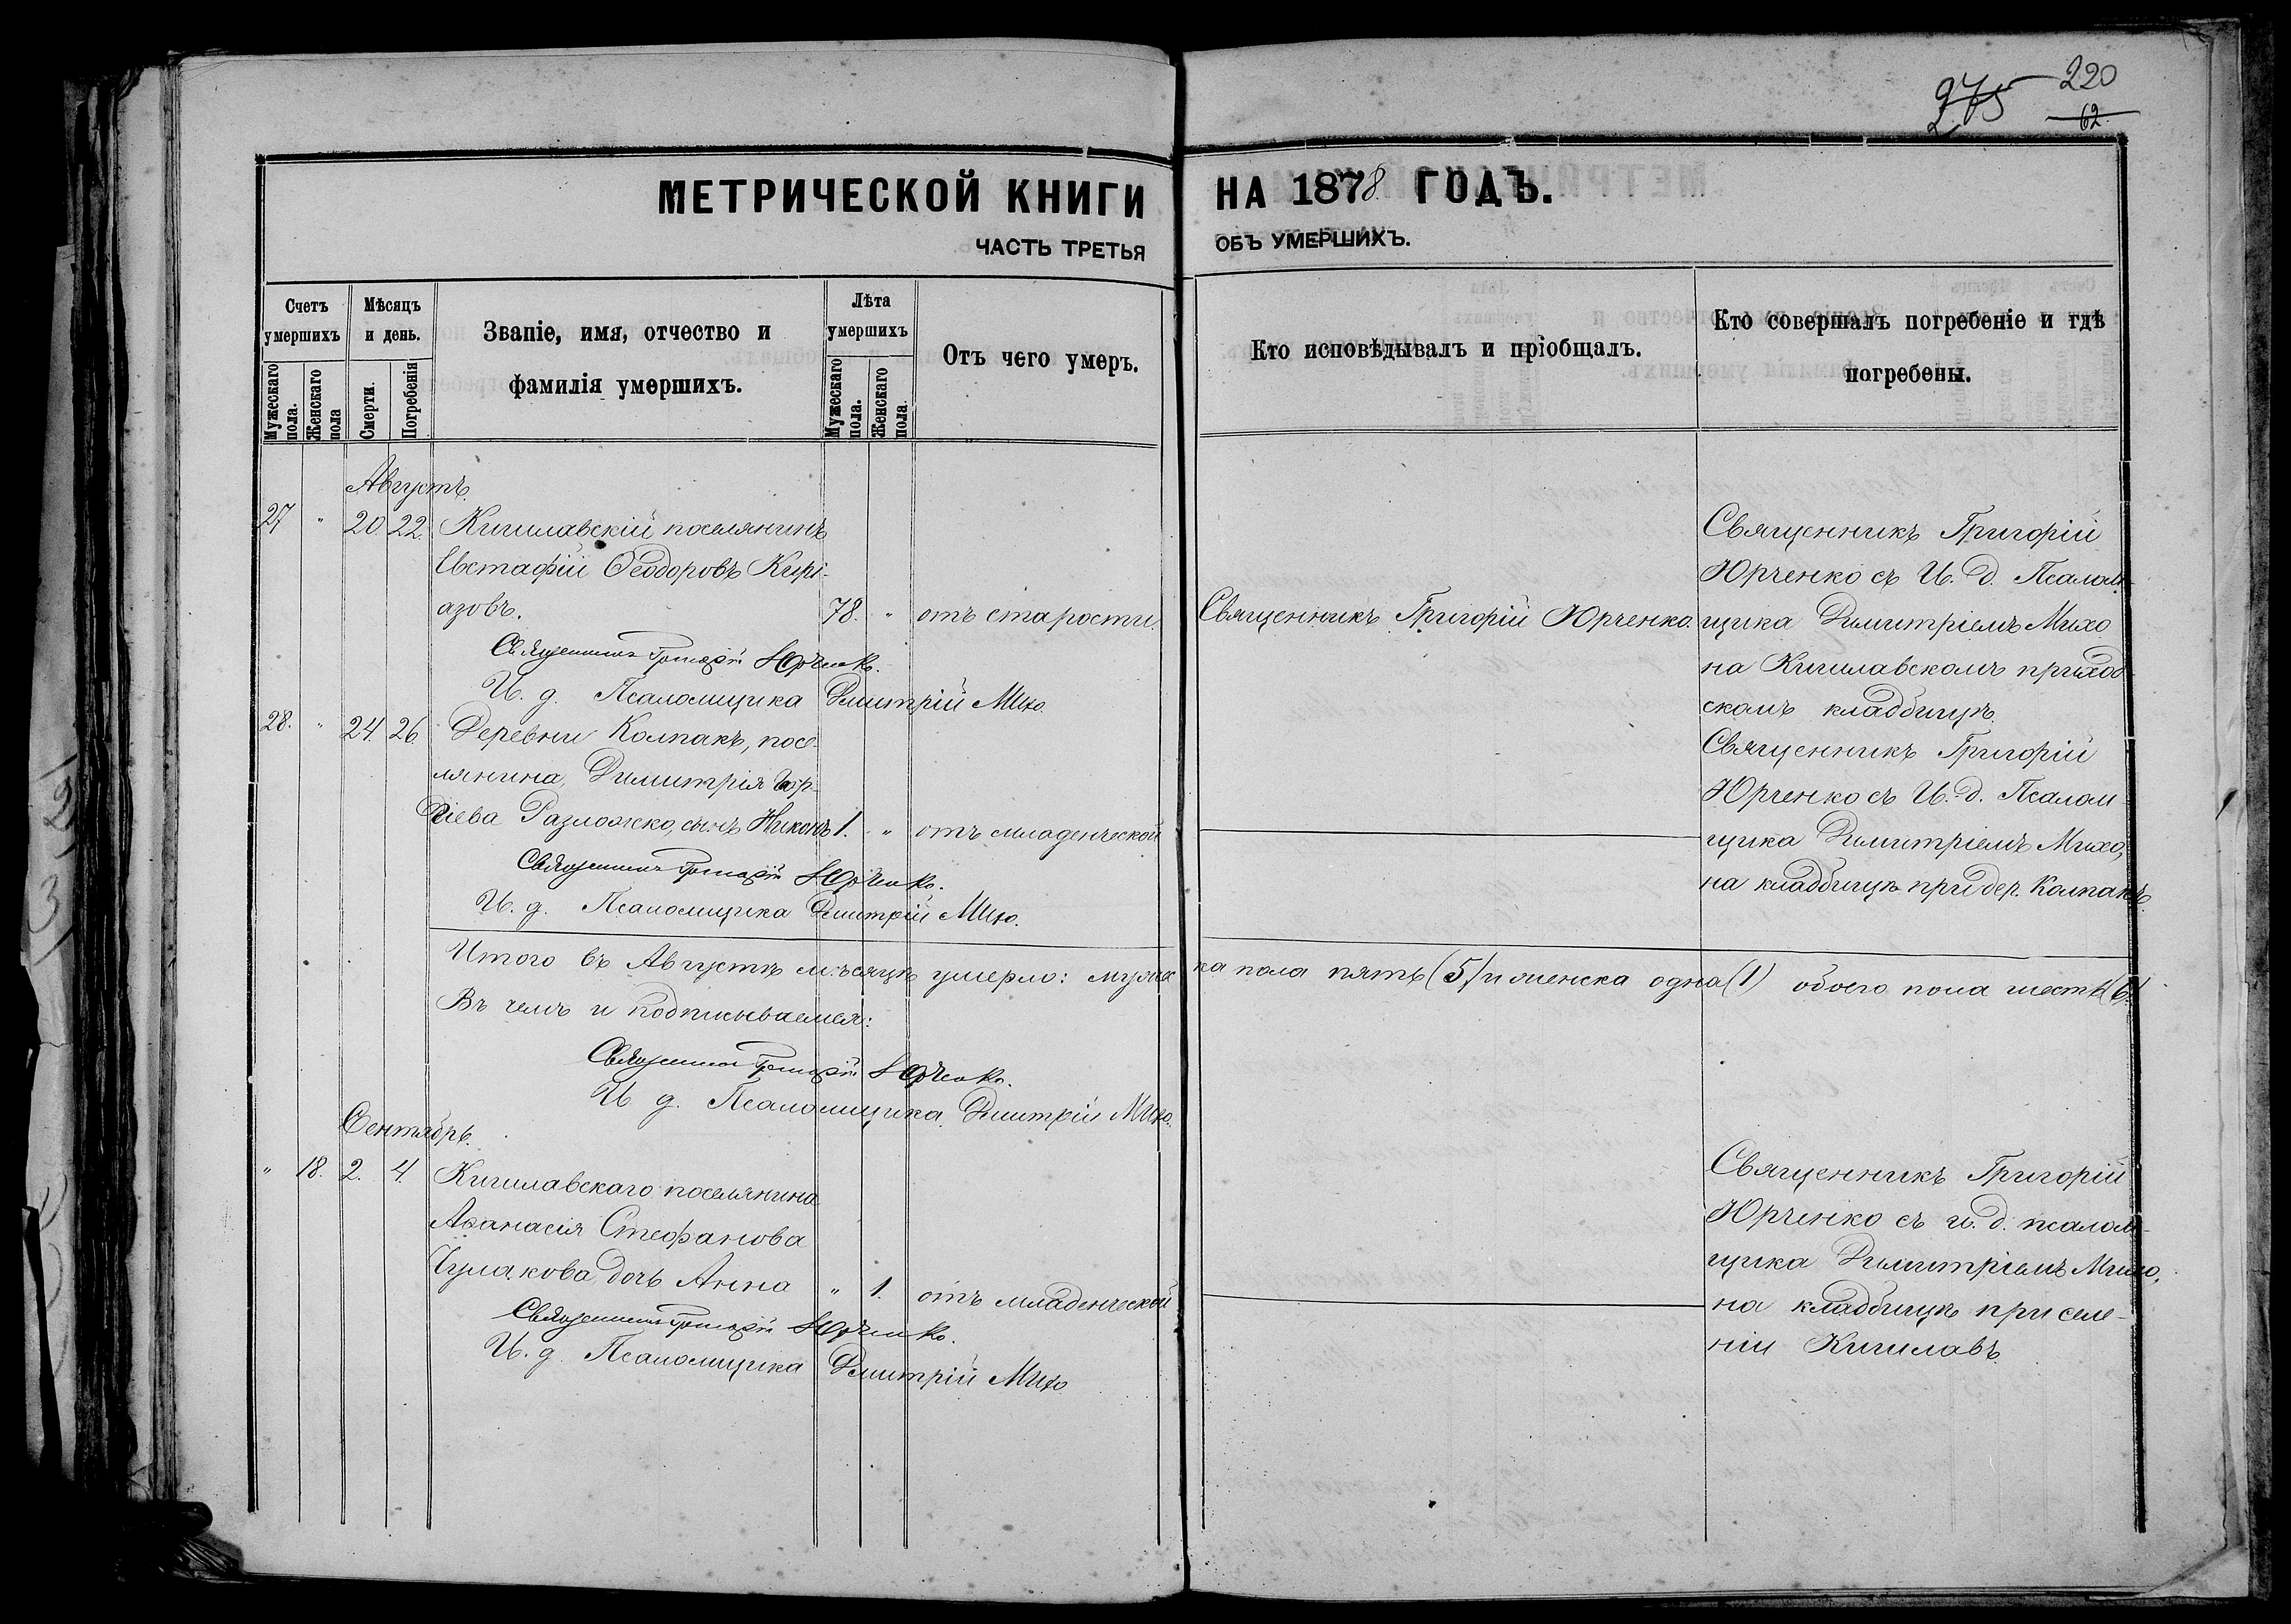 275 220
62
МЕТРИЧЕСКОЙ КНИГИ НА 1878 ГОДЪ.
ЧАСТЬ ТРЕТЬЯ ОБЪ УМЕРШИХЪ.
Счетъ умершихъ
Мужескаго пола.
Женскаго пола
Мѣсяцъ и день.
Смерти.
Погребенія
Званіе, имя, отчество и
фамилія умершихъ.
Лѣта умершихъ
Мужескаго пола.
Женскаго пола.
Отъ чего умеръ.
Кто исповѣдывалъ и пріобщалъ.
Кто совершалъ погребеніе и гдѣ
погребены.
Августъ.
27 " 20 22. Кишлавскій поселянинъ
Евстафій Ѳеодоровъ Кирі-
азовъ. 78. " отъ старости.
Священникъ Григорій Юрченко.
Священникъ Григорій
Юрченко съ И. д. Псалом-
щика Димитріемъ Михо
на Кишлавскомъ приход-
скомъ кладбищѣ.
Священникъ Григорій Юрченко.
И. д. Псаломщика Дмитрій Михо.
28. " 24. 26. Деревни Колпакъ, посе-
лянина, Димитрія Геор-
гіева Разложко, сынъ Никонъ 1. " отъ младенческой
Священникъ Григорій
Юрченко съ И. д. Псалом-
щика Димитріемъ Михо,
на кладбищѣ при дер. Колпакъ.
Священникъ Григорій Юрченко.
И. д. Псаломщика Дмитрій Михо.
Итого въ Августѣ мѣсяцѣ умерло: мужеска пола пять (5) и женска одна (1) обоего пола шесть (6).
Въ чемъ и подписываемся:
Священникъ Григорій Юрченко.
И д. Псаломщика Дмитрій Михо.
Сентябрь.
" 18. 2. 4. Кишлавскаго поселянина
Аѳанасія Стефанова
Чулакова дочь Анна " 1. отъ младенческой
Священникъ Григорій
Юрченко съ и. д. псалом-
щика Димитріемъ Михо,
на кладбищѣ при селе-
ніи Кишлавъ
Священникъ Григорій Юрченко.
И. д. Псаломщика Дмитрій Михо